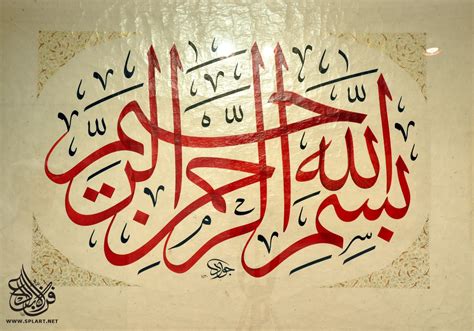 بِسْمِ اللّٰهِ الرَّحْمٰنِ الرَّحِيْمِ
WWW.SPLART.NET